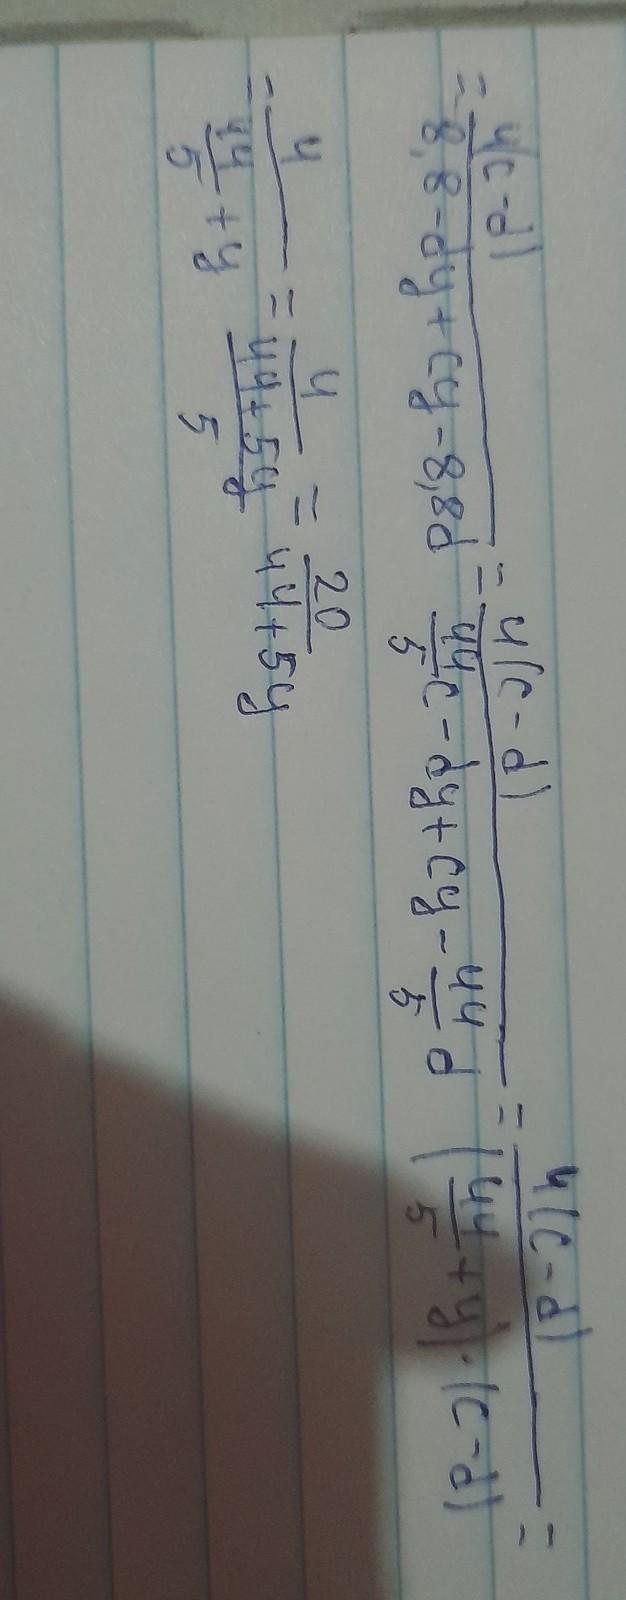 = 4(c-d) / 8,8-dy+cy-8,8d = 4(c-d) / 44/5 c-dy+cy-44/5 d = 4(c-d) / (44/5+y)·(c-d) =
= 4 / 44/5+y = 4 / 44+5y/5 = 20 / 44+5y